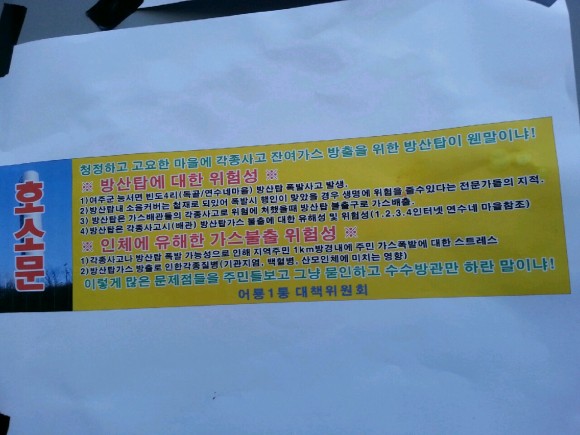 호소문
청정하고 고요한 마을에 각종사고 잔여가스 방출을 위한 방산탑이 웬말이냐!
※ 방산탑에 대한 위험성 ※
1)여주군 능서면 번도4리(톡골/연수네마을) 방산탑 폭발사고 발생.
2)방산탑내 소음커버는 철재로 되있어 폭발시 행인이 맞았을 경우 생명에 위험을 줄수있다는 전문가들의 지적.
3)방산탑은 가스배관들의 각종사고로 위험에 처했을때 방산탑 불출구로 가스배출.
4)방산탑은 각종사고시(배관) 방산탑가스 불출에 대한 유해성 및 위험성(1.2.3.4인터넷 연수네 마을참조)
※ 인체에 유해한 가스불출 위험성 ※
1)각종사고나 방산탑 폭발 가능성으로 인해 지역주민 1km방경내에 주민 가스폭발에 대한 스트레스
2)방산탑가스 방출로 인한각종질병(기관지염, 백혈병, 산모인체에 미치는 영향)
이렇게 많은 문제점들을 주민들보고 그냥 묵인하고 수수방관만 하란 말이냐!
어룡1통 대책위원회